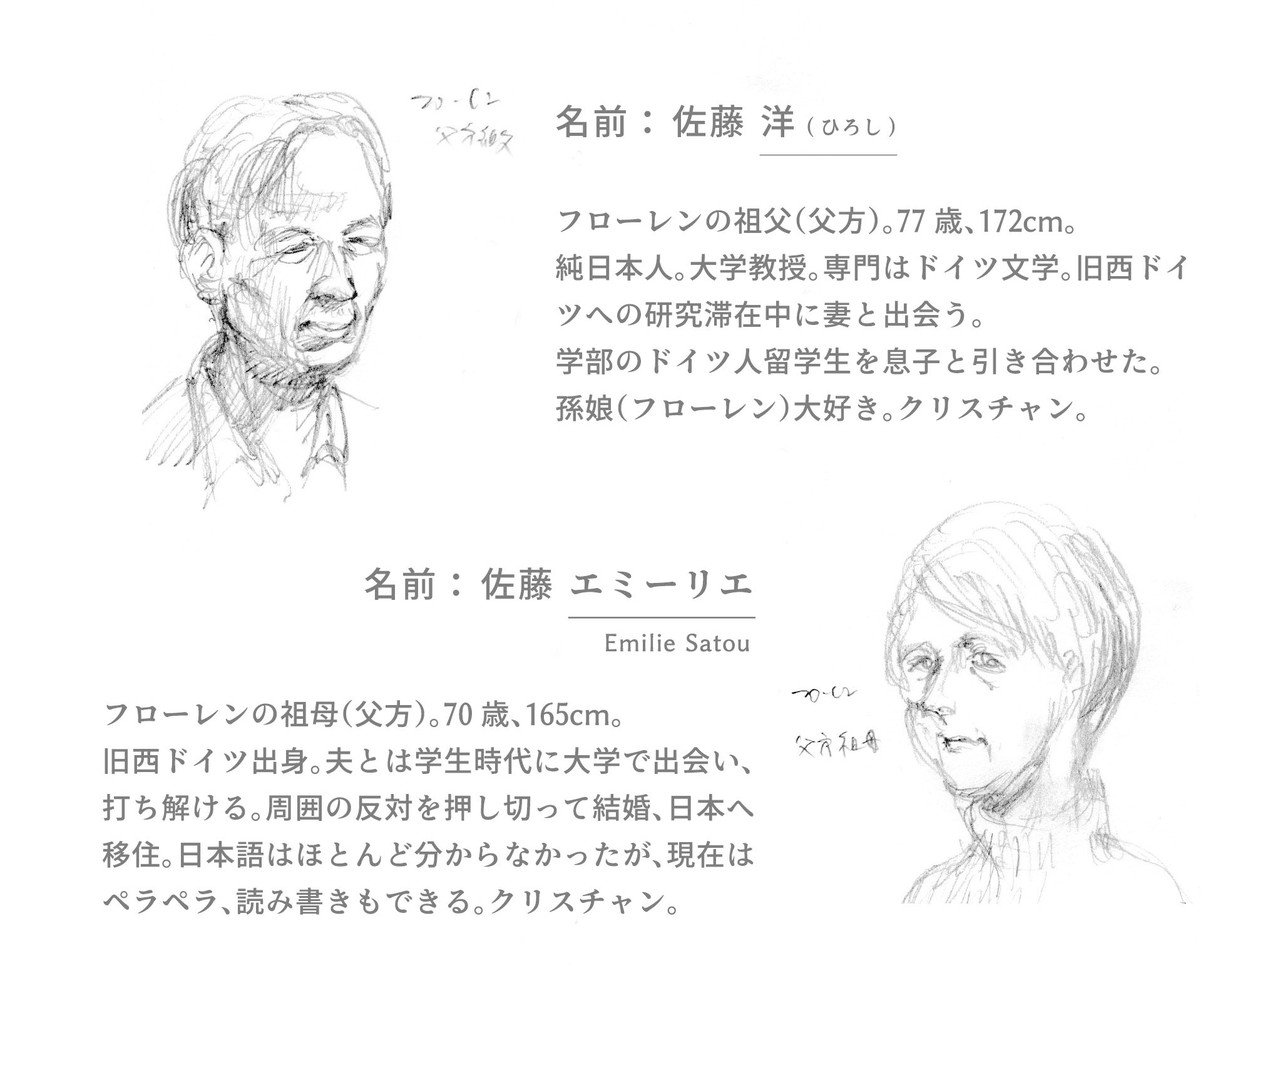 父方祖父
名前： 佐藤 洋 (ひろし)
フローレンの祖父(父方)。77 歳、172cm。
純日本人。大学教授。専門はドイツ文学。旧西ドイ
ツへの研究滞在中に妻と出会う。
学部のドイツ人留学生を息子と引き合わせた。
孫娘(フローレン)大好き。クリスチャン。
名前： 佐藤 エミーリエ
Emilie Satou
父方祖母
フローレンの祖母(父方)。70 歳、165cm。
旧西ドイツ出身。夫とは学生時代に大学で出会い、
打ち解ける。周囲の反対を押し切って結婚、日本へ
移住。日本語はほとんど分からなかったが、現在は
ペラペラ、読み書きもできる。クリスチャン。